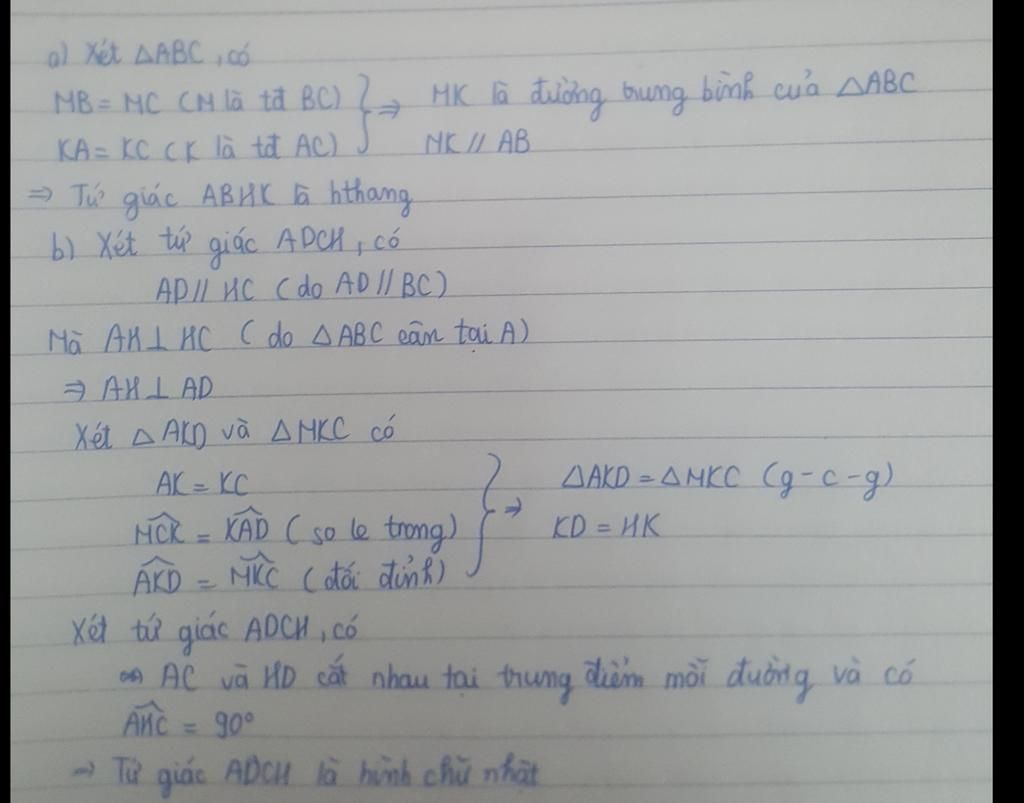 a) Xét △ABC, có
MB = MC (M là tđ BC) } ⇒ MK là đường trung bình của △ABC
KA = KC (K là tđ AC) MK // AB
⇒ Tứ giác ABMK là hthang
b) Xét tứ giác ADCM, có
AD // MC (do AD // BC)
Mà AM ⊥ MC (do △ABC cân tại A)
⇒ AM ⊥ AD
Xét △AKD và △MKC có
AK = KC } ⇒ △AKD = △MKC (g-c-g)
MCK = KAD (so le trong) KD = MK
AKD = MKC (đối đỉnh)
Xét tứ giác ADCM, có
AC và MD cắt nhau tại trung điểm mỗi đường và có
AMC = 90°
→ Tứ giác ADCM là hình chữ nhật